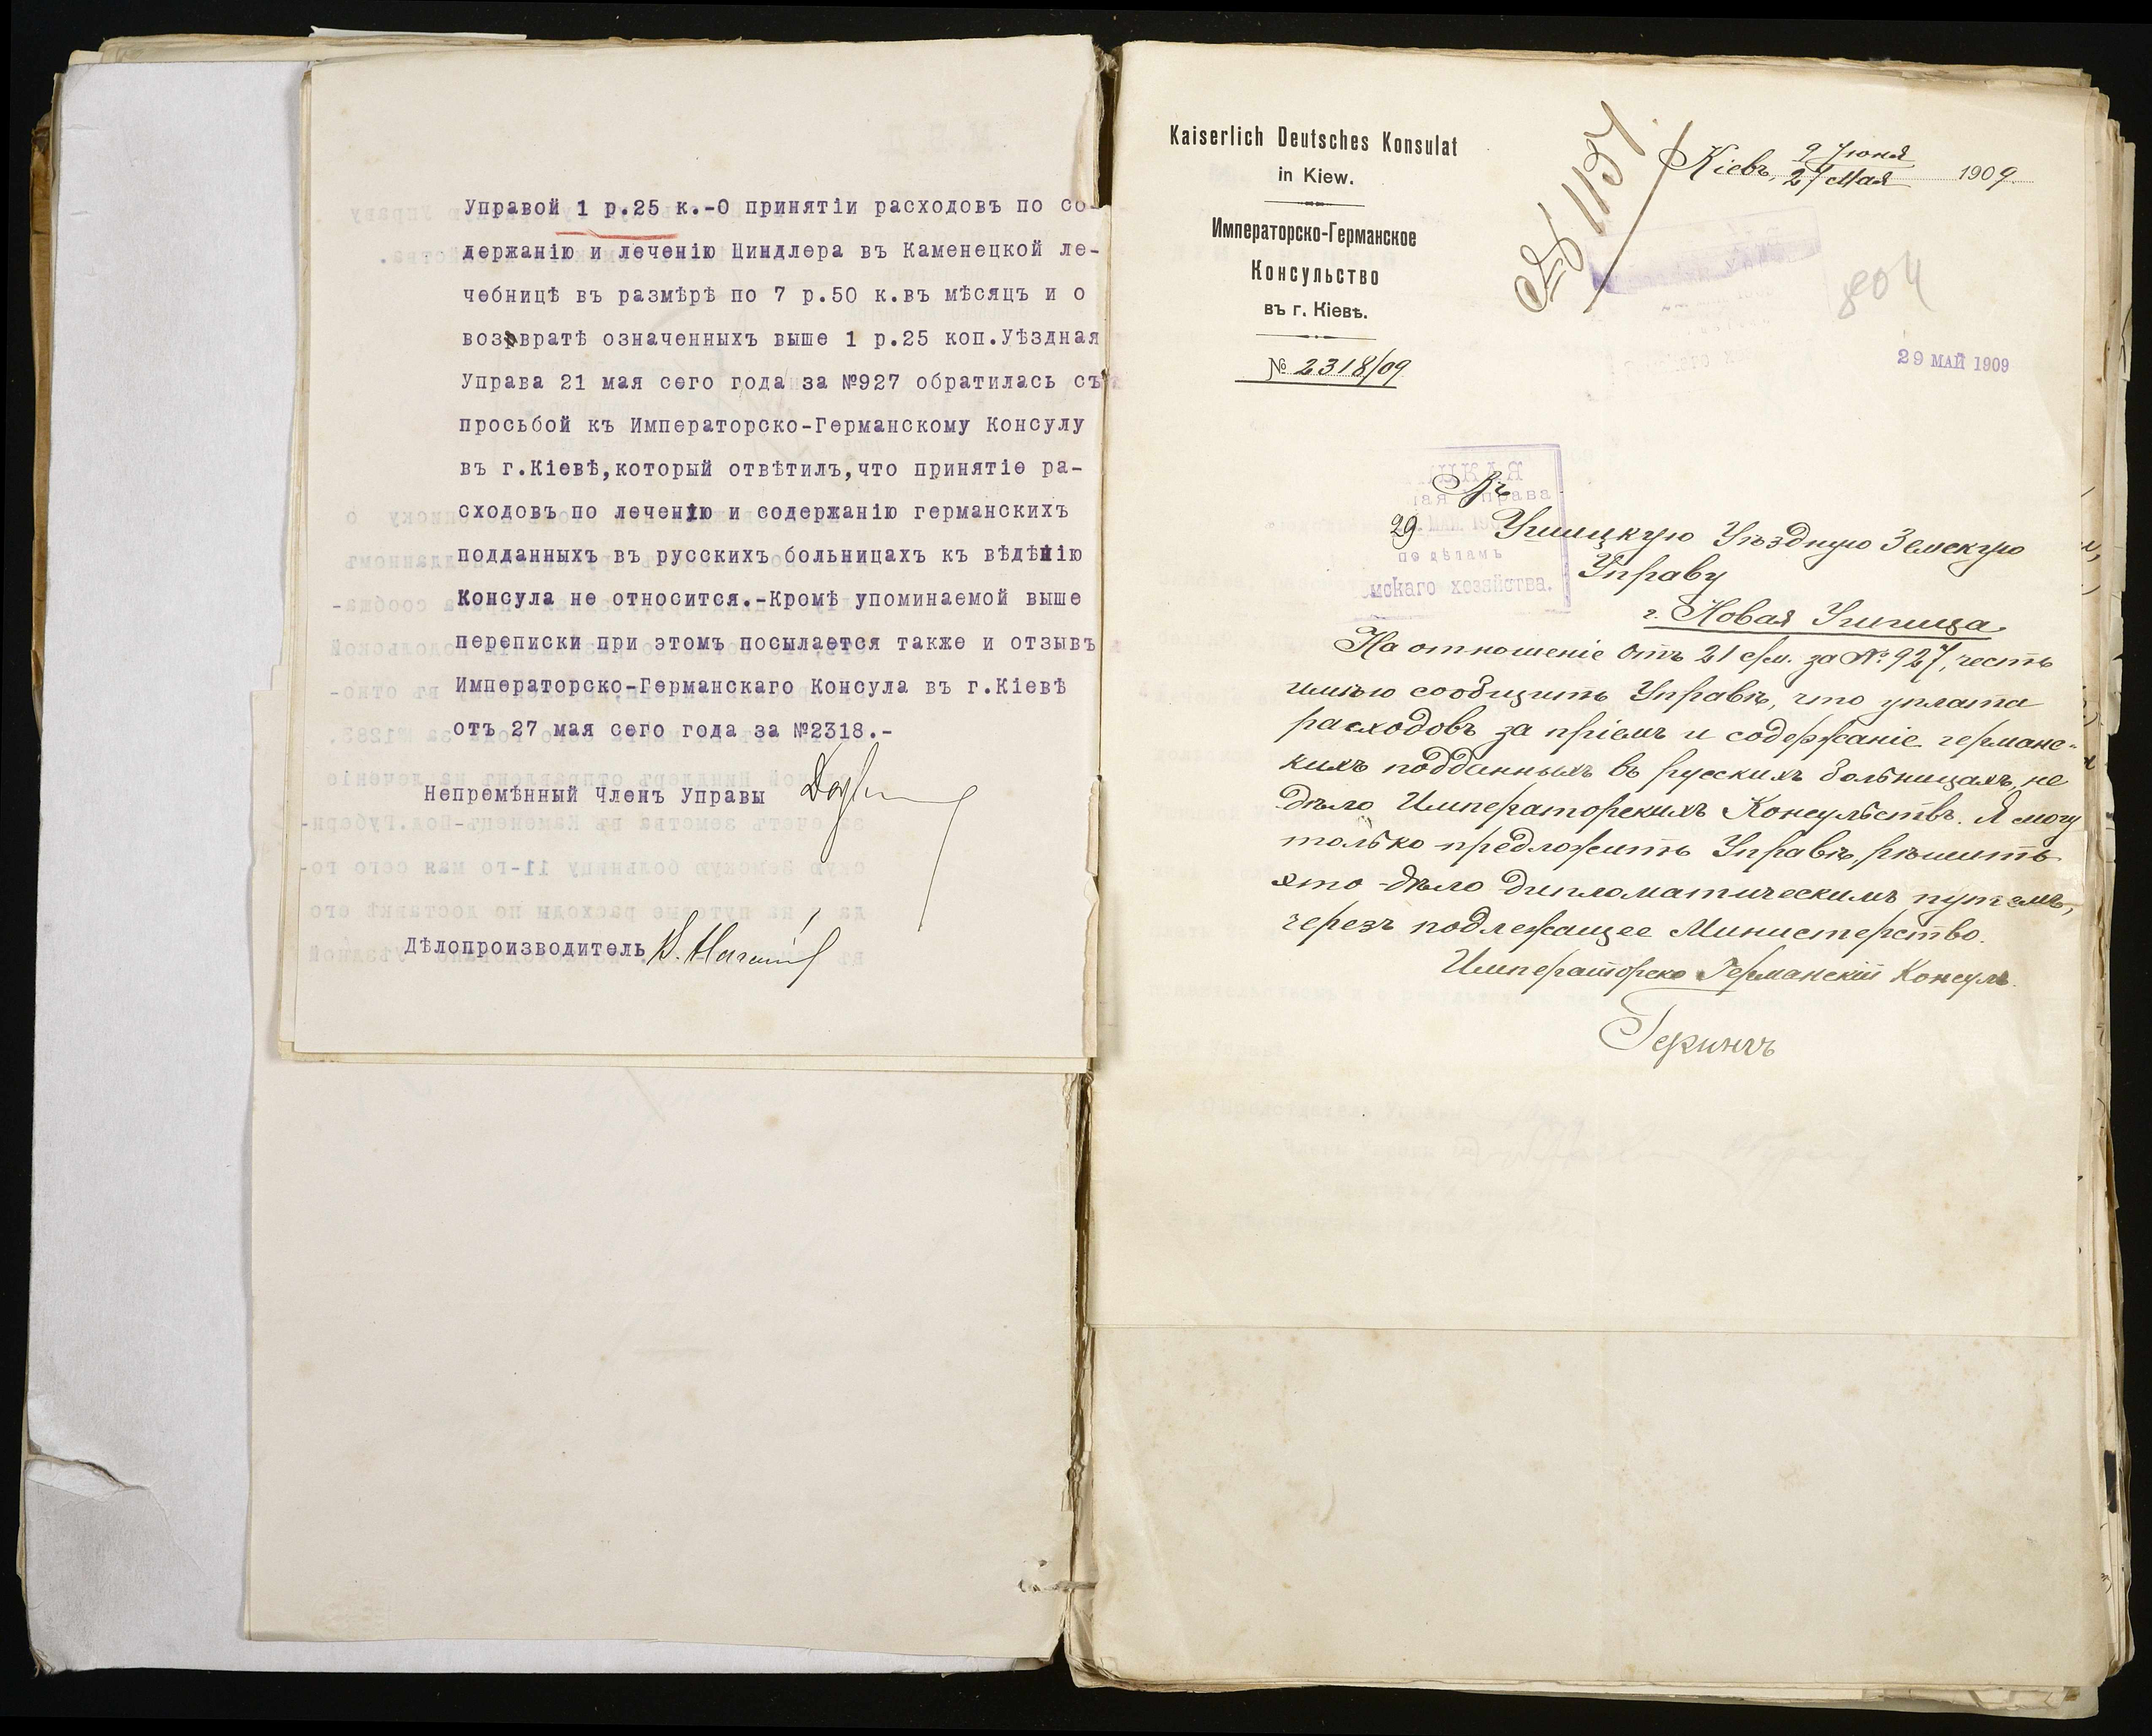 Управой 1 р.25 к.-О принятіи расходовъ по со-
держанію и леченію Циндлера въ Каменецкой ле-
чебницѣ въ размѣрѣ по 7 р.50 к.въ мѣсяцъ и о
возвратѣ означенныхъ выше 1 р.25 коп.Уѣздная
Управа 21 мая сего года за №927 обратилась съ
просьбой къ Императорско-Германскому Консулу
въ г.Кіевѣ,который отвѣтилъ,что принятіе ра-
сходовъ по леченію и содержанію германскихъ
подданныхъ въ русскихъ больницахъ къ вѣдѣнію
Консула не относится.-Кромѣ упоминаемой выше
переписки при этомъ посылается также и отзывъ
Императорско-Германскаго Консула въ г.Кіевѣ
отъ 27 мая сего года за №2318.-
Непремѣнный Членъ Управы
Дѣлопроизводитель
Kaiserlich Deutsches Konsulat
in Kiew.
Императорско-Германское
Консульство
въ г. Кіевѣ.
№ 2318/09
Кіевъ, 9 Іюня
27 Мая 1909.
804
29 МАЙ 1909
Въ
29
по дѣламъ
хозяйства.
Ушицкую Уѣздную Земскую
Управу
г. Новая Ушица.
На отношеніе отъ 21 с/м. за №927, честь
имѣю сообщить Управѣ, что уплата
расходовъ за пріемъ и содержаніе германс-
кихъ подданныхъ въ русскихъ больницахъ, не
дѣло Императорскихъ Консульствъ. Я могу
только предложить Управѣ, рѣшить
это дѣло дипломатическимъ путемъ,
черезъ подлежащее Министерство.
Императорско Германскій Консулъ.
Герингъ